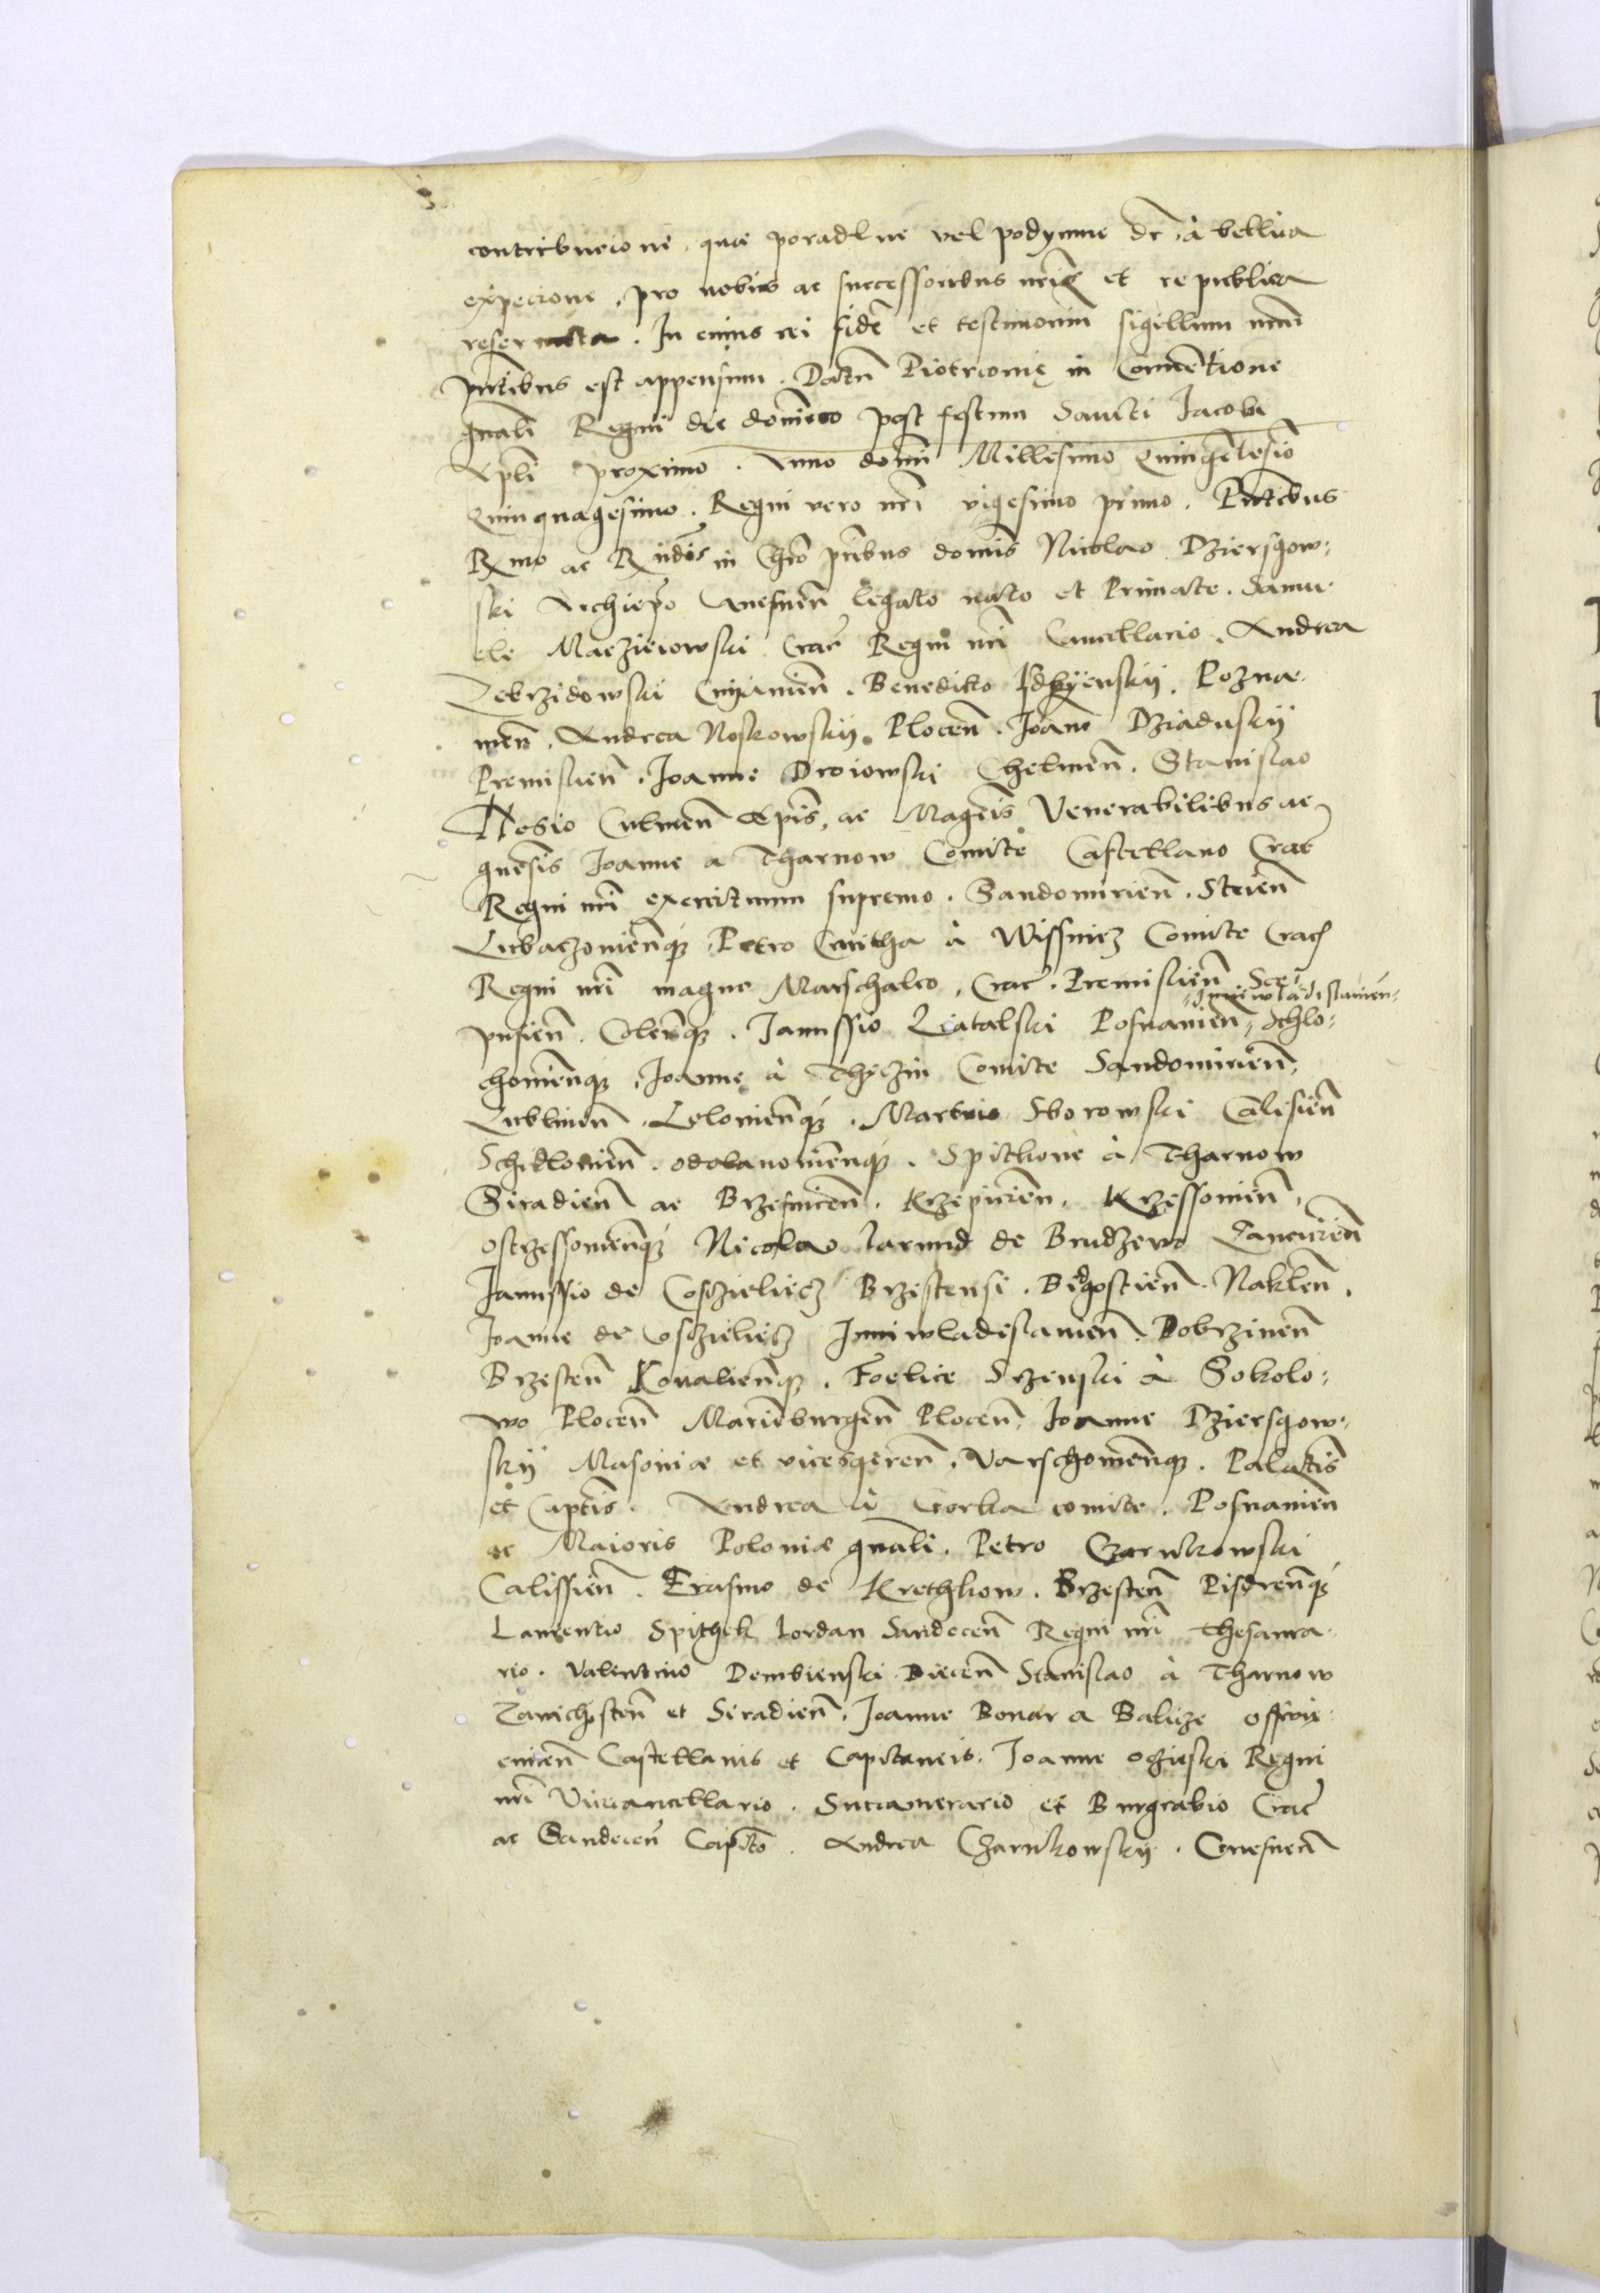 contribucione, que poradlne vel podymne dr, à bellica
expecione, pro nobis ac successoribus nris et republica
reservata. In cuius rei fidē et testimoniū sigillum nrm
pntibus est appensum. Datū Piotrcowię in Conventione
gnali Regni die dominico post festum Sancti Jacobi
Apli proximo. Anno domi Millesimo Quingētesiō
Quinquagesimo. Regni vero nri vigesimo primo. Pntibus
Rmo ac Rndis in Chro pribus domis Nicolao Dziersgow:
ski Archiepo Gnesnēn legato nato et Primate. Samu
ele Macziejowski Crac Regni nri Cancellario. Andrea
Zebrzidowski Cuiavien. Benedicto Isdbyenskij. Pozna
nien. Andrea Noskowskij Plocen. Joane Dziaduskij
Premislien. Joanne Droiowski Chelmen. Stanislao
Hosio Culmen Epis, ac Magcis Venerabilibus ac
gnesis Joanne a Tharnow Comite Castellano Crac
Regni nri exercituum supremo. Sandomirien. Strien
Lubaczovienq. Petro Cmitha à Wissnicz Comite Crac
Regni nri magno Marschalco, Crac. Premislien Sce:
pusien. Colenq. Janussio Latalski Posnanien, Juniwladislavien, Schlo:
chovienq. Joanne à Thęczin Comite Sandomirien,
Lublinen. Lelovienq. Martino Sborowski Calisien
Schidlovien. odolanovienq. Spithone à Tharnow
Siradien ac Brzesnicen. Krzepicien. Krzessovien,
ostrzessovienq Nicolao Jarand de Brudzewo Lancicien
Janussio de Cosczieliecz Brzestensi. Bidgostien. Naklen.
Joanne de Cosczieliecz Juniwladislavien. Dobrzinen
Brzesten Kovalienq. Foelice Srzenski à Sokolo:
wo Plocen Marieburgen Plocen. Joanne Dziersgow:
skij Masovie et vicesgeren. Varschovienq. Palatis
et Captis. Andrea à Gorka comite. Posnanien
ac Maioris Polonie gnali. Petro Czarnkowski
Calissien. Erasmo de Krethkow. Brzesten Pisdrenq
Laurentio Spithek Jordan Sandecen Regni nri Thesaura
rio. Valentino Dembienski Biecen Stanislao à Tharnow
Zawichosten et Siradien. Joanne Bonar a Balicze Osswie
cimen Castellanis et Capitaneis. Joanne oczieski Regni
nri Vicecancellario. Succamerario et Burgrabio Crac
ac Sandecen Capito. Andrea Czarnkowskij. Gnesnen